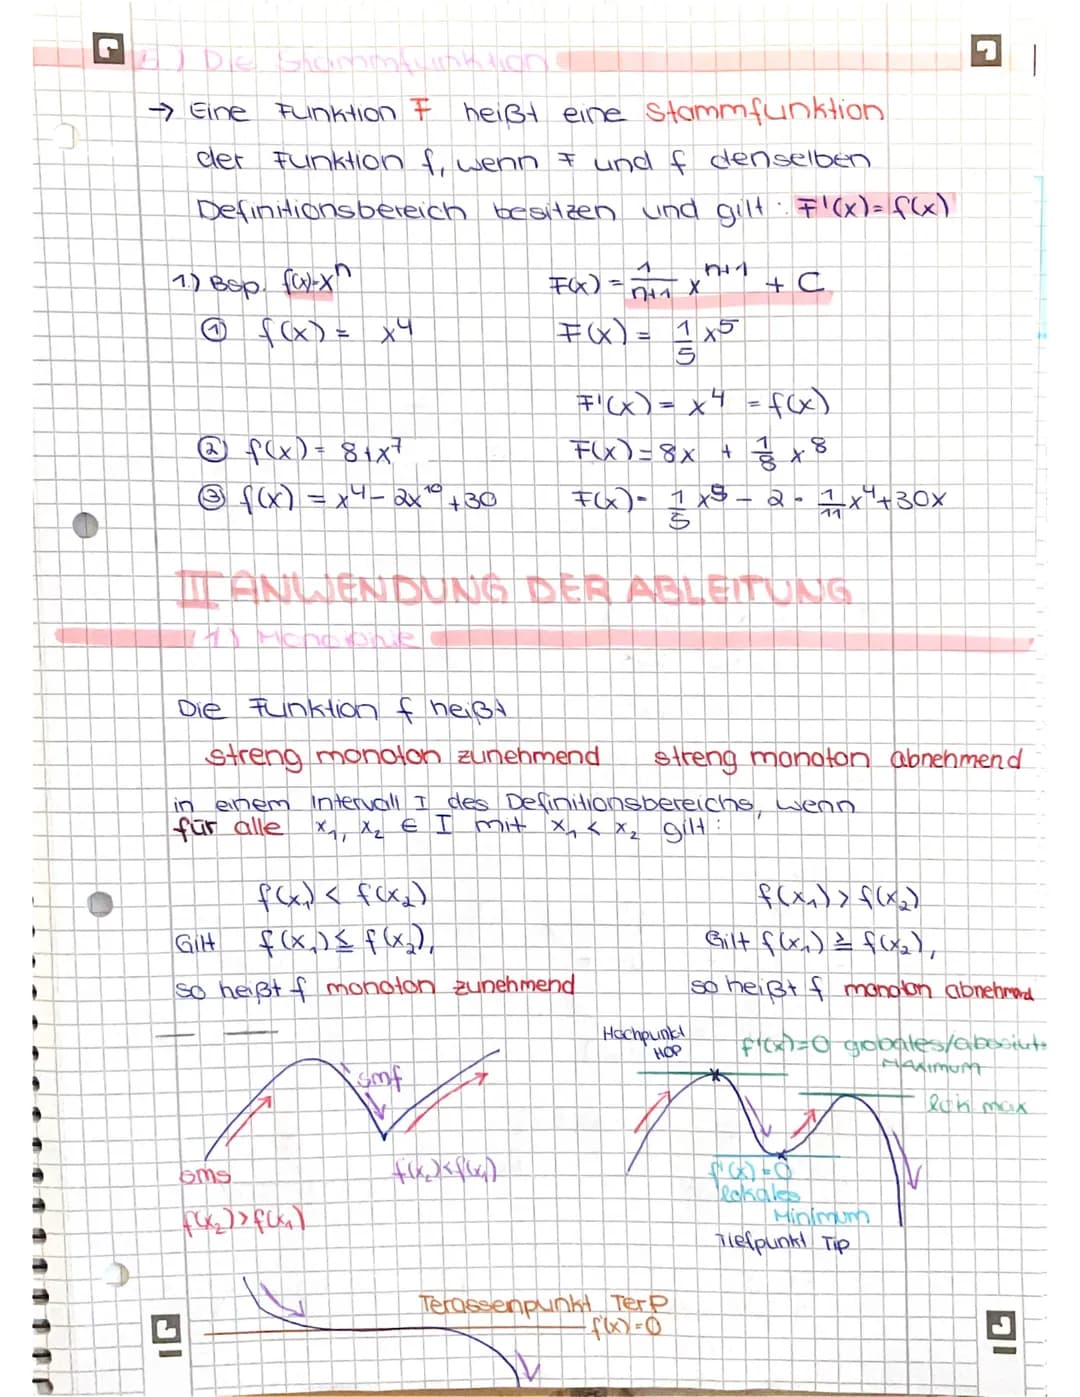 5) Die Stammfunktion
→ Eine Funktion F heißt eine Stammfunktion
der Funktion f, wenn F und f denselben
Definitionsbereich besitzen und gilt: F'(x)=f(x)
1.) Bsp. f(x)=xⁿ F(x) = 1/(n+1) xⁿ⁺¹ + C
① f(x) = x⁴ F(x) = 1/5 x⁵
F'(x) = x⁴ = f(x)
② f(x) = 8+x⁷ F(x) = 8x + 1/8 x⁸
③ f(x) = x⁴ - 2x¹⁰ + 30 F(x) = 1/5 x⁵ - 2 · 1/11 x¹¹ + 30x
III ANWENDUNG DER ABLEITUNG
1) Monotonie
Die Funktion f heißt
streng monoton zunehmend streng monoton abnehmend
in einem Intervall I des Definitionsbereichs, wenn
für alle x₁, x₂ ∈ I mit x₁ < x₂ gilt:
f(x₁) < f(x₂) f(x₁) > f(x₂)
Gilt f(x₁) ≤ f(x₂), Gilt f(x₁) ≥ f(x₂),
so heißt f monoton zunehmend so heißt f monoton abnehmend
Hochpunkt
HOP
f'(x)=0 gobales/absolut
MAXIMUM
smf
lok max
sms
f(x₂)<f(x₁)
f(x₂)>f(x₁)
f'(x)=0
lokales
Minimum
Tiefpunkt TIP
Terassenpunkt TerP
f'(x)=0